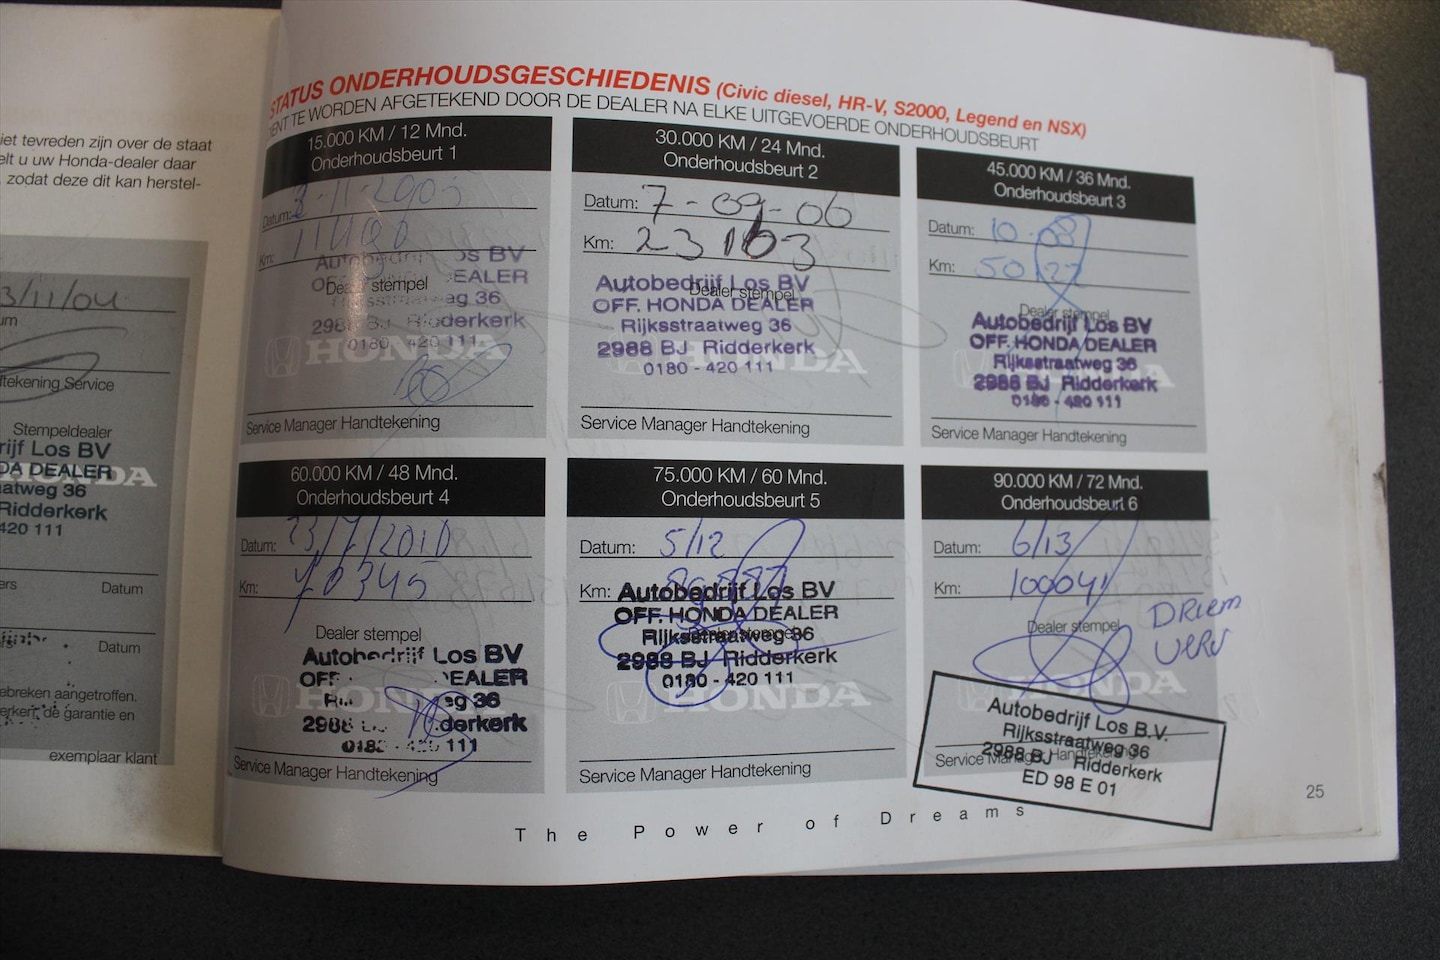 iet tevreden zijn over de staat
elt u uw Honda-dealer daar
, zodat deze dit kan herstel-
3/11/04
um
ftekening Service
Stempeldealer
rijf Los BV
DA DEALER
HONDA
aatweg 36
Ridderkerk
420 111
ers Datum
Datum
ebreken aangetroffen.
erkent, de garantie en
exemplaar klant
STATUS ONDERHOUDSGESCHIEDENIS (Civic diesel, HR-V, S2000, Legend en NSX)
ENT TE WORDEN AFGETEKEND DOOR DE DEALER NA ELKE UITGEVOERDE ONDERHOUDSBEURT
15.000 KM / 12 Mnd.
Onderhoudsbeurt 1
Datum: 3-11-2005
Km:
Autobedrijf Los BV
Dealer stempel
DEALER
Rijksstraatweg 36
2988 BJ Ridderkerk
0180 - 420 111
HONDA
Service Manager Handtekening
30.000 KM / 24 Mnd.
Onderhoudsbeurt 2
Datum: 7-09-06
Km: 23103
Autobedrijf Los BV
Dealer stempel
OFF. HONDA DEALER
Rijksstraatweg 36
2988 BJ Ridderkerk
0180 - 420 111
HONDA
Service Manager Handtekening
45.000 KM / 36 Mnd.
Onderhoudsbeurt 3
Datum: 10-08
Km: 50122
Dealer stempel
Autobedrijf Los BV
OFF. HONDA DEALER
Rijksstraatweg 36
2988 BJ Ridderkerk
0180 - 420 111
Service Manager Handtekening
60.000 KM / 48 Mnd.
Onderhoudsbeurt 4
Datum: 23/7/2010
Km: 70345
Dealer stempel
Autobedrijf Los BV
OFF. DEALER
eg 36
2988 Ridderkerk
HONDA
111
Service Manager Handtekening
75.000 KM / 60 Mnd.
Onderhoudsbeurt 5
Datum: 5/12
Km:
Autobedrijf Los BV
OFF. HONDA DEALER
Rijksstraatweg 36
2988 BJ Ridderkerk
0180 - 420 111
HONDA
Service Manager Handtekening
90.000 KM / 72 Mnd.
Onderhoudsbeurt 6
Datum: 6/13
Km: 100041
Dealer stempel
DRiem
VERV
HONDA
Autobedrijf Los B.V.
Rijksstraatweg 36
2988 BJ Ridderkerk
ED 98 E 01
Service Manager Handtekening
The Power of Dreams
25